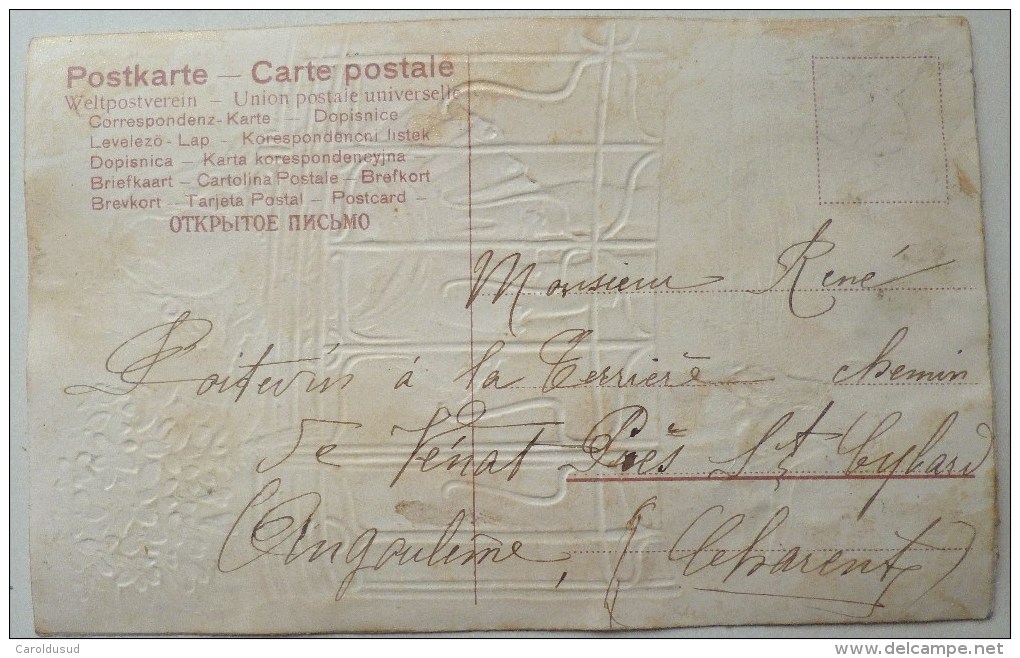 Postkarte — Carte postale
Weltpostverein – Union postale universelle
Correspondenz-Karte — Dopisnice
Levelezö-Lap – Korespondencni listek
Dopisnica – Karta korespondencyjna –
Briefkaart – Cartolina Postale – Brefkort
Brevkort – Tarjeta Postal – Postcard –
ОТКРЫТОЕ ПИСЬМО
Monsieur René
Poitevin à la Terrière chemin
de Vénat Près St Cybard
Angoulême, (Charente)
© Caroldusud
delcampe.net